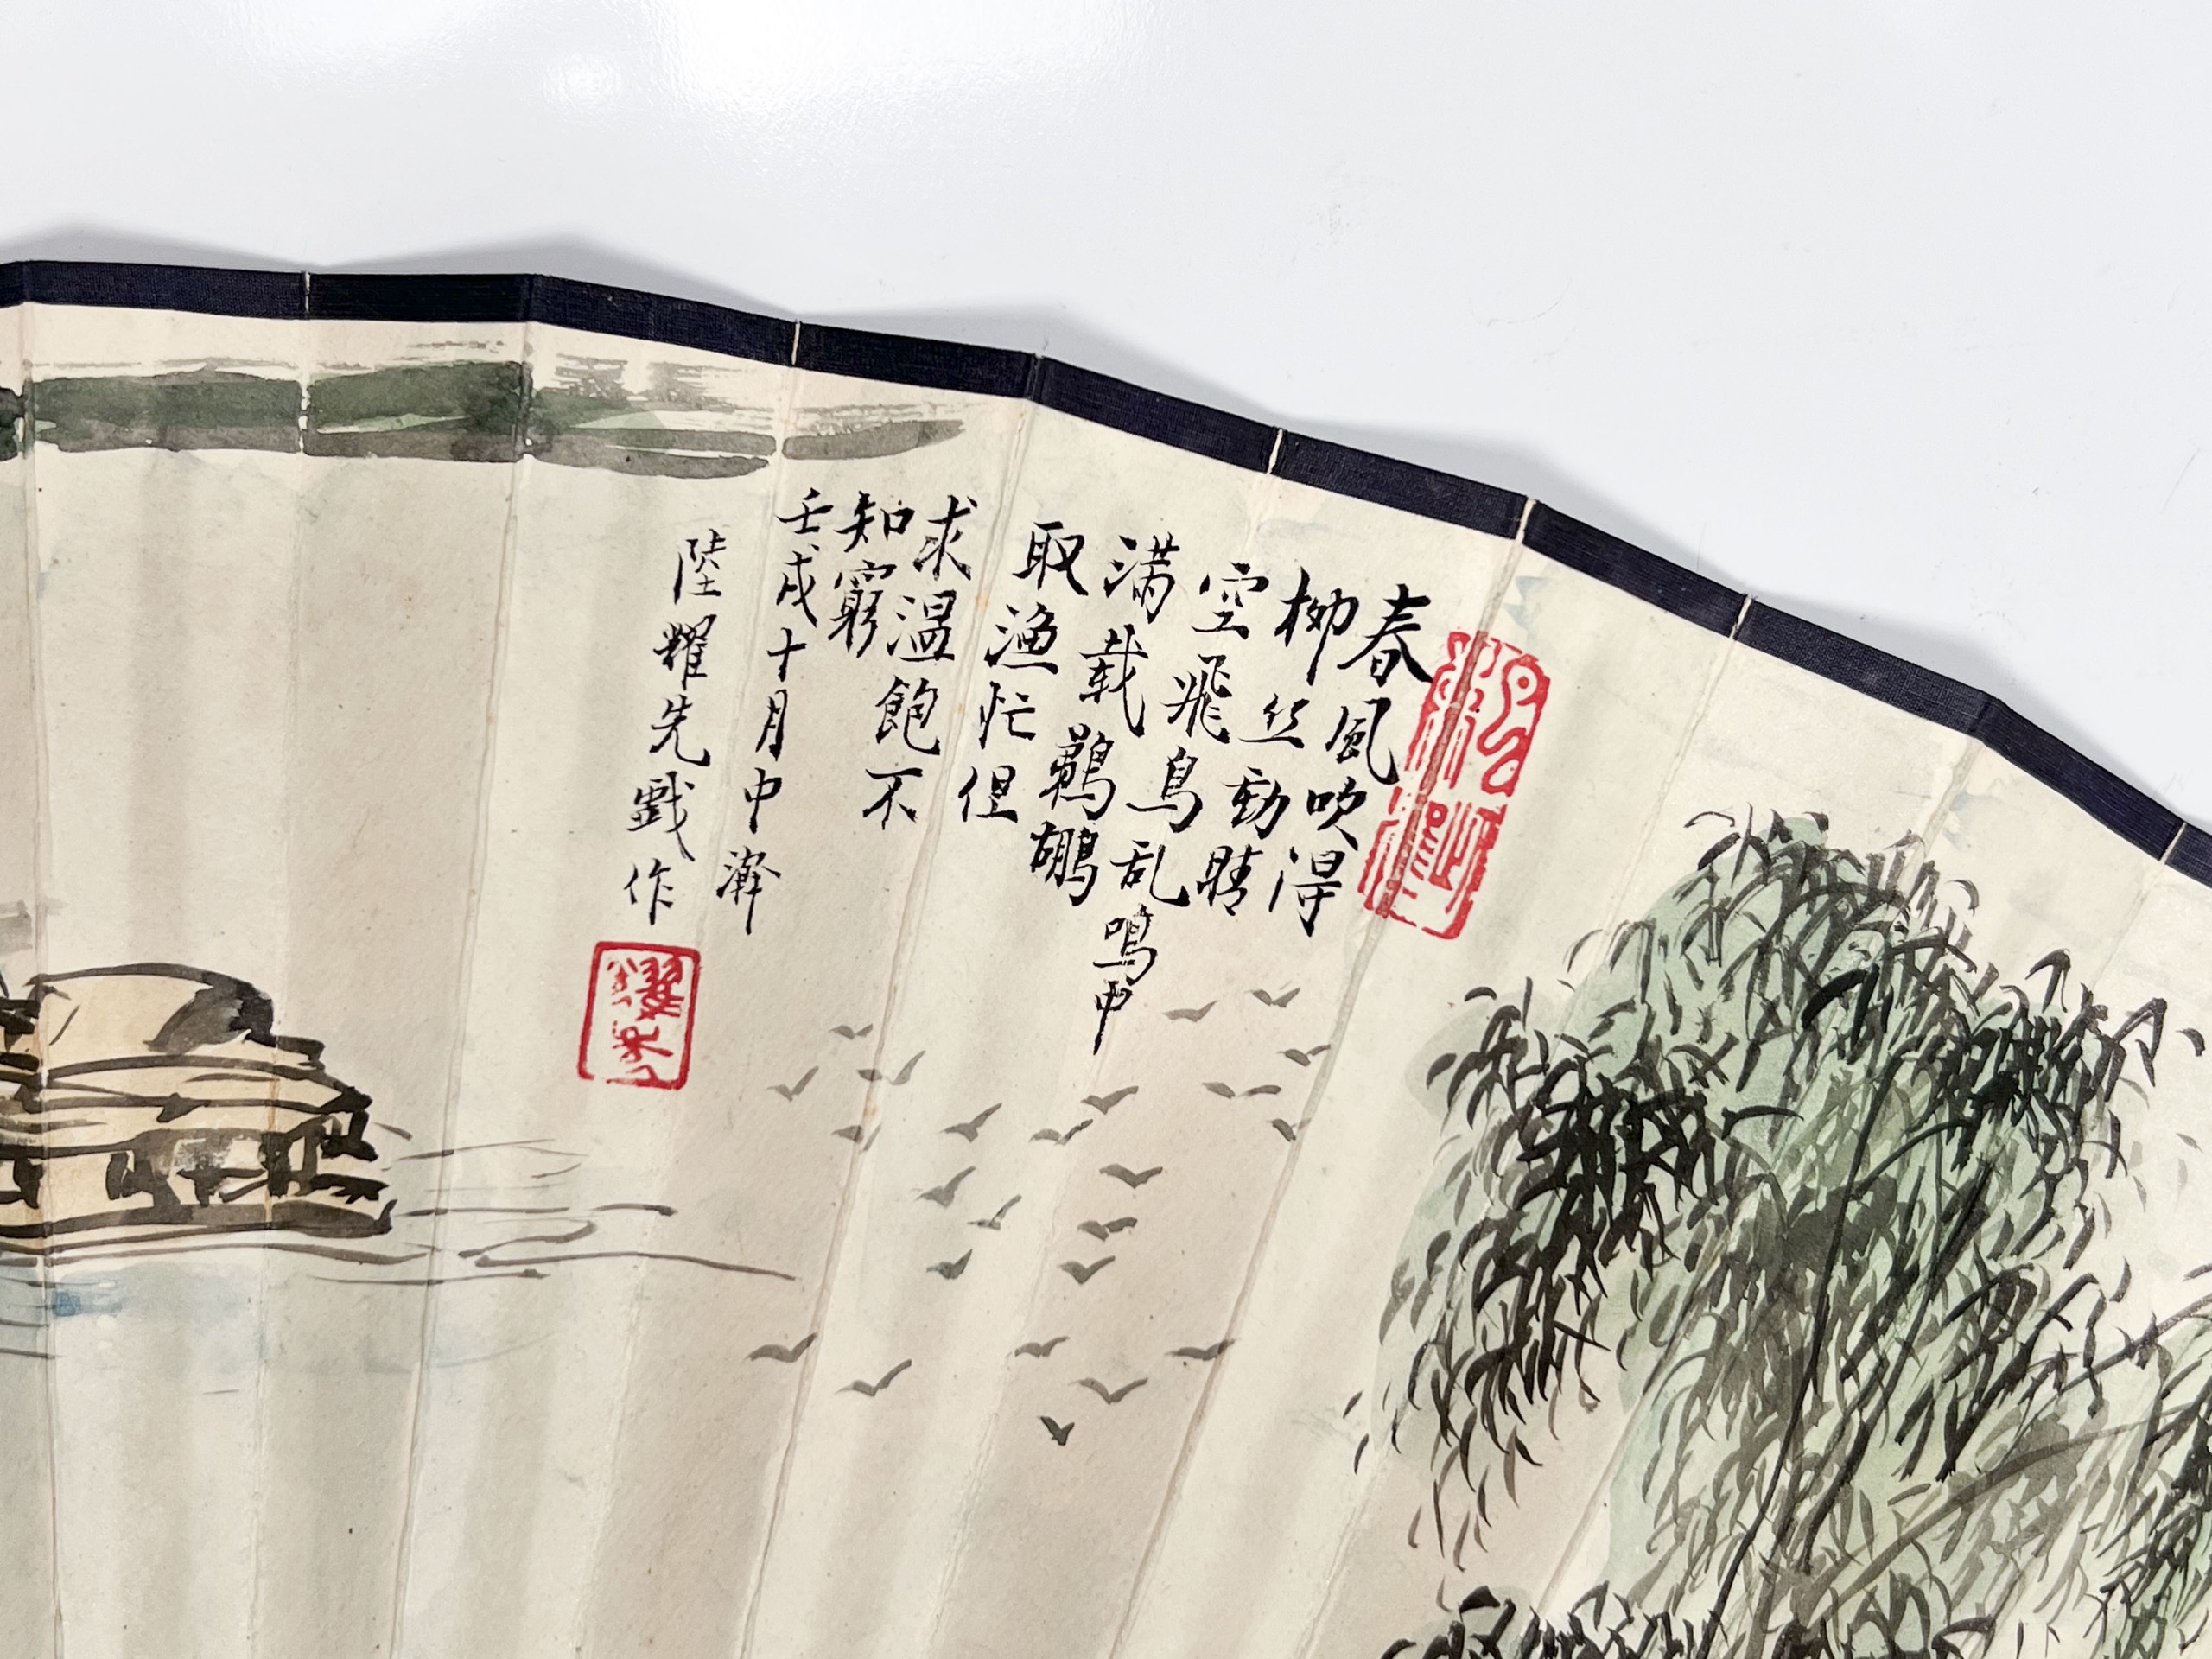 春風吹得
柳丝動晴
空飛鳥乱鳴中
满载鹈鹕
取漁忙但
求温飽不
知窮
壬戌十月中澣
陸耀先戲作